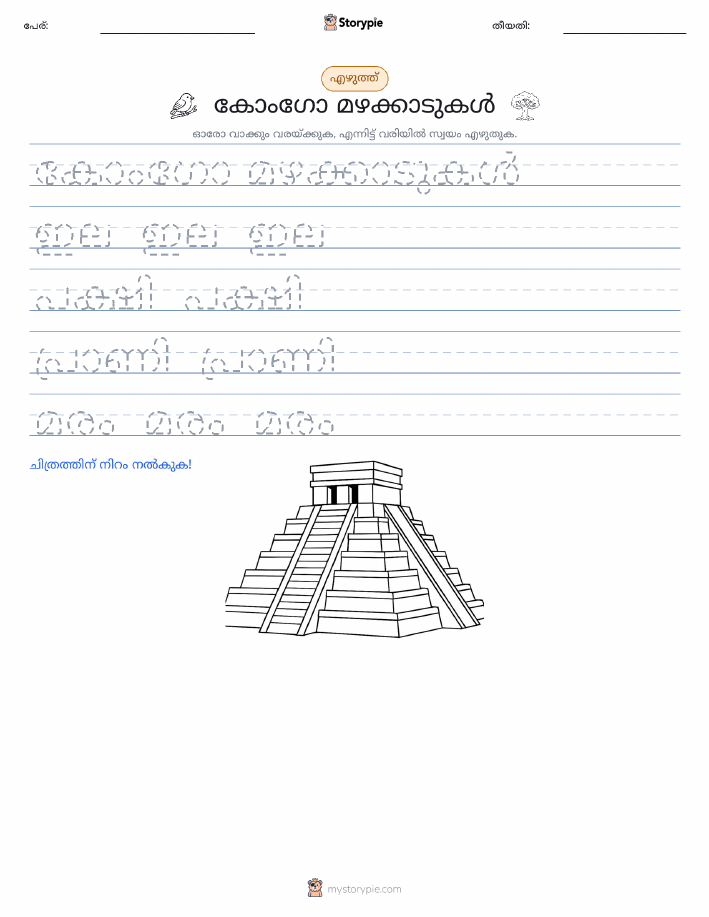 പേര്:
Storypie
തീയതി:
എഴുത്ത്
കോംഗോ മഴക്കാടുകൾ
ഓരോ വാക്കും വരയ്ക്കുക, എന്നിട്ട് വരിയിൽ സ്വയം എഴുതുക.
കോംഗോ മഴക്കാടുകൾ
ഇല ഇല ഇല
പക്ഷി പക്ഷി
പ്രാണി പ്രാണി
മരം മരം മരം
ചിത്രത്തിന് നിറം നൽകുക!
mystorypie.com